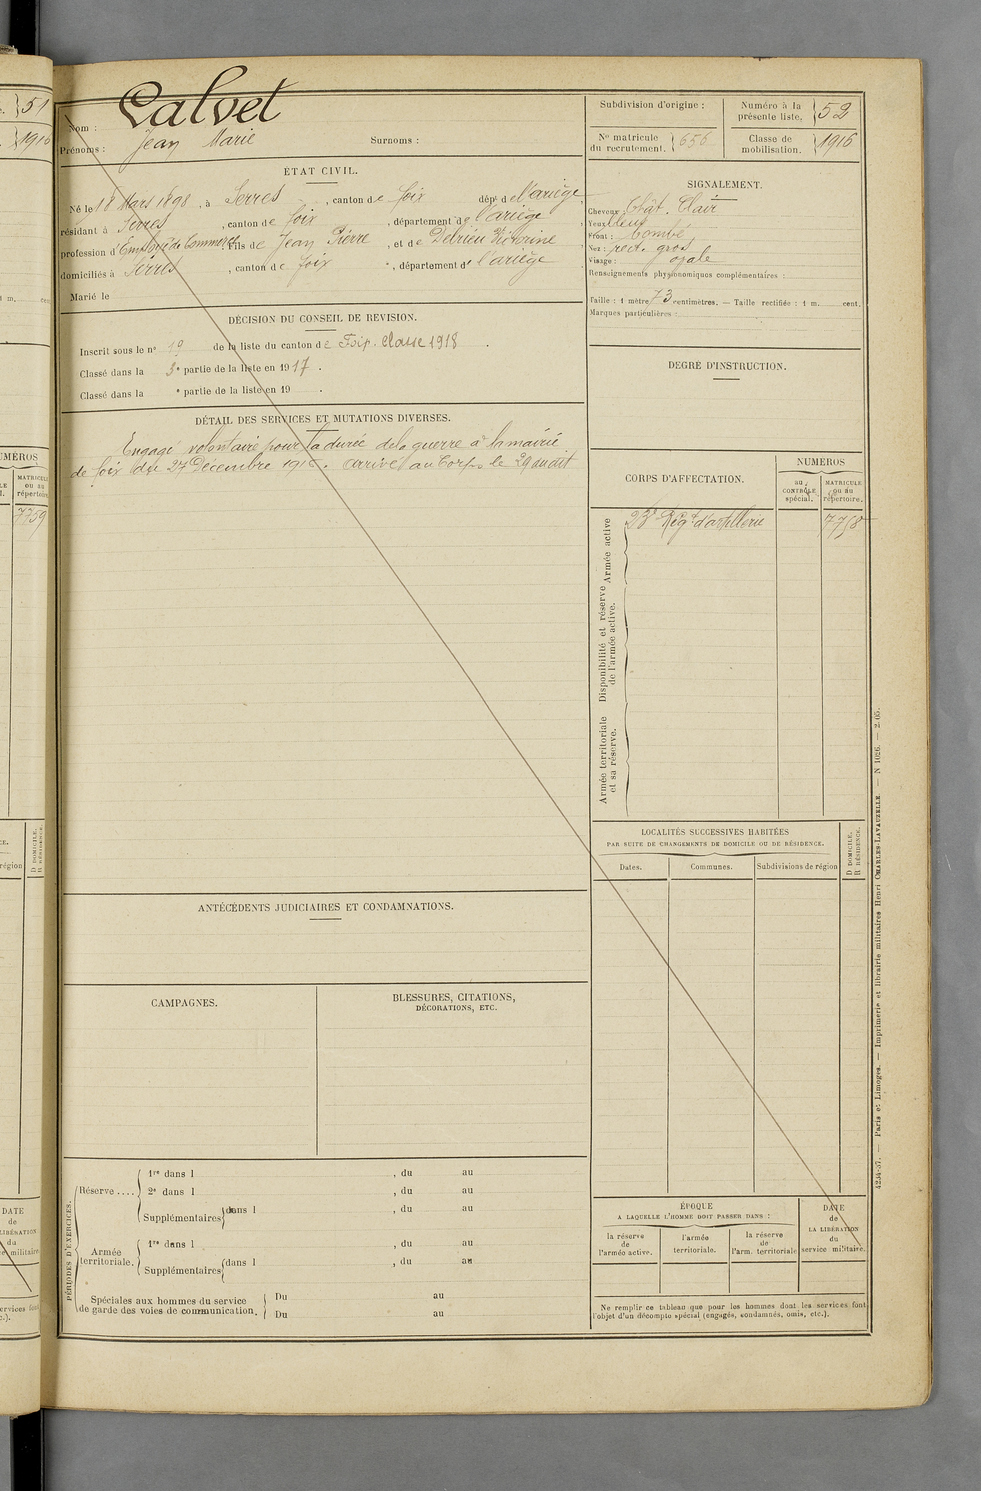 Nom : Calvet
Prénoms : Jean Marie Surnoms :
ÉTAT CIVIL.
Né le 18 Mars 1898, à Serres, canton de foix dépt de l'ariège,
résidant à Serres, canton de foix, département de l'ariège
profession d'Employé de Commerce, fils de Jean Pierre, et de Delrieu Victorine
domiciliés à Serres, canton de foix, département d' l'ariège
Marié le
DÉCISION DU CONSEIL DE RÉVISION.
Inscrit sous le n° de la liste du canton de Foix. Classe 1918.
Classé dans la 3e partie de la liste en 1917.
Classé dans la e partie de la liste en 19
DÉTAIL DES SERVICES ET MUTATIONS DIVERSES.
Engagé volontaire pour la durée de la guerre à la mairie
de foix le 27 Décembre 1916. arrivé au Corps le 29 au dit
ANTÉCÉDENTS JUDICIAIRES ET CONDAMNATIONS.
CAMPAGNES.
BLESSURES, CITATIONS,
DÉCORATIONS, ETC.
PÉRIODES D'EXERCICES.
Réserve ....
1re dans l , du au
2e dans l , du au
Supplémentaires dans l , du au
Armée territoriale.
1re dans l , du au
Supplémentaires dans l , du au
Spéciales aux hommes du service
de garde des voies de communication.
Du au
Du au
Subdivision d'origine :
N° matricule
du recrutement. 656
Numéro à la
présente liste. 52
Classe de
mobilisation. 1916
SIGNALEMENT.
Cheveux Chât. Clair
Yeux bleus
Front : bombé
Nez : rect. gros
Visage : ovale
Renseignements physionomiques complémentaires :
Taille : 1 mètre 73 centimètres. — Taille rectifiée : 1 m. cent.
Marques particulières :
DEGRÉ D'INSTRUCTION.
CORPS D'AFFECTATION.
NUMÉROS
au
CONTRÔLE
spécial.
MATRICULE
ou au
répertoire.
Armée active
23e Régt d'artillerie 7758
Disponibilité et réserve
de l'armée active.
Armée territoriale
et sa réserve.
LOCALITÉS SUCCESSIVES HABITÉES
PAR SUITE DE CHANGEMENTS DE DOMICILE OU DE RÉSIDENCE.
Dates. Communes. Subdivisions de région
D DOMICILE.
R RÉSIDENCE.
ÉPOQUE
A LAQUELLE L'HOMME DOIT PASSER DANS :
la réserve
de
l'armée active.
l'armée
territoriale.
la réserve
de
l'arm. territoriale
DATE
de
LA LIBÉRATION
du
service militaire.
Ne remplir ce tableau que pour les hommes dont les services font
l'objet d'un décompte spécial (engagés, condamnés, omis, etc.).
4234-37. — Paris et Limoges. — Imprimerie et librairie militaires Henri CHARLES-LAVAUZELLE. — N 1026. — 2-05.
51
1916
NUMÉROS
MATRICULE
ou au
répertoire
7759
région
D DOMICILE.
R RÉSIDENCE.
DATE
de
LIBÉRATION
du
militaire
services font